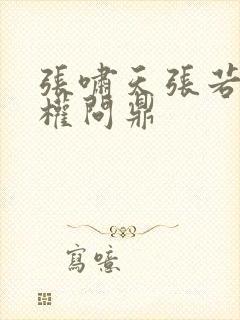 張嘯天張若
權問鼎
寫噫